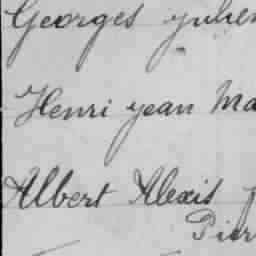 Georges Julien
Henri Jean Ma
Albert Alexis
Pier